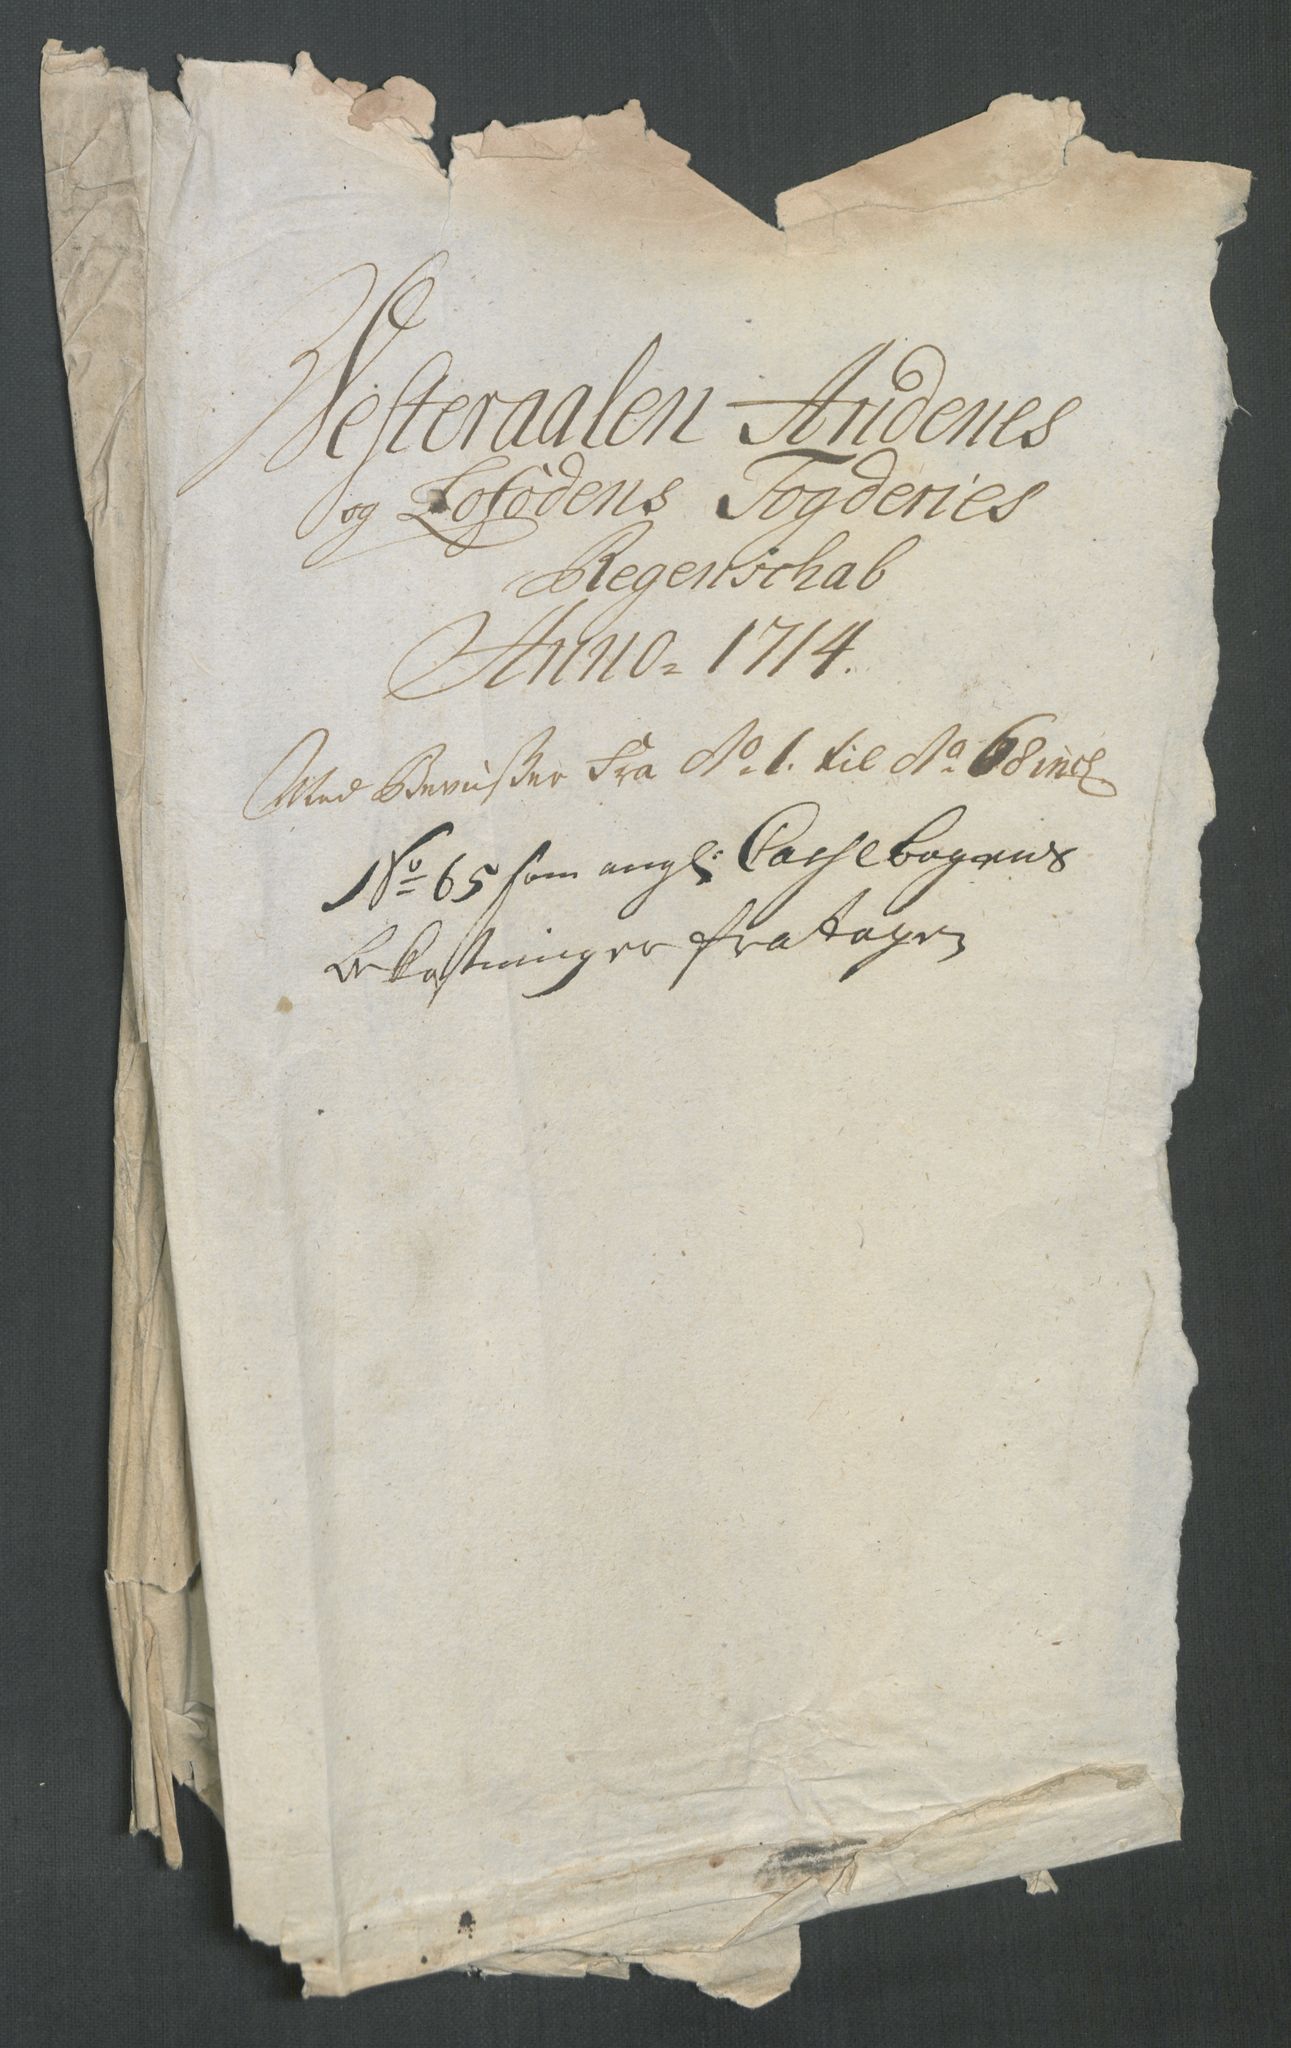 Westeraalen Andenes
og Lofodens Fogderies
Regenschab
Anno 1714.
Med Beviißer Fra No. 1. til No. 68 incl
No 65 som angl: Casse bogens
bekostninger fratagen